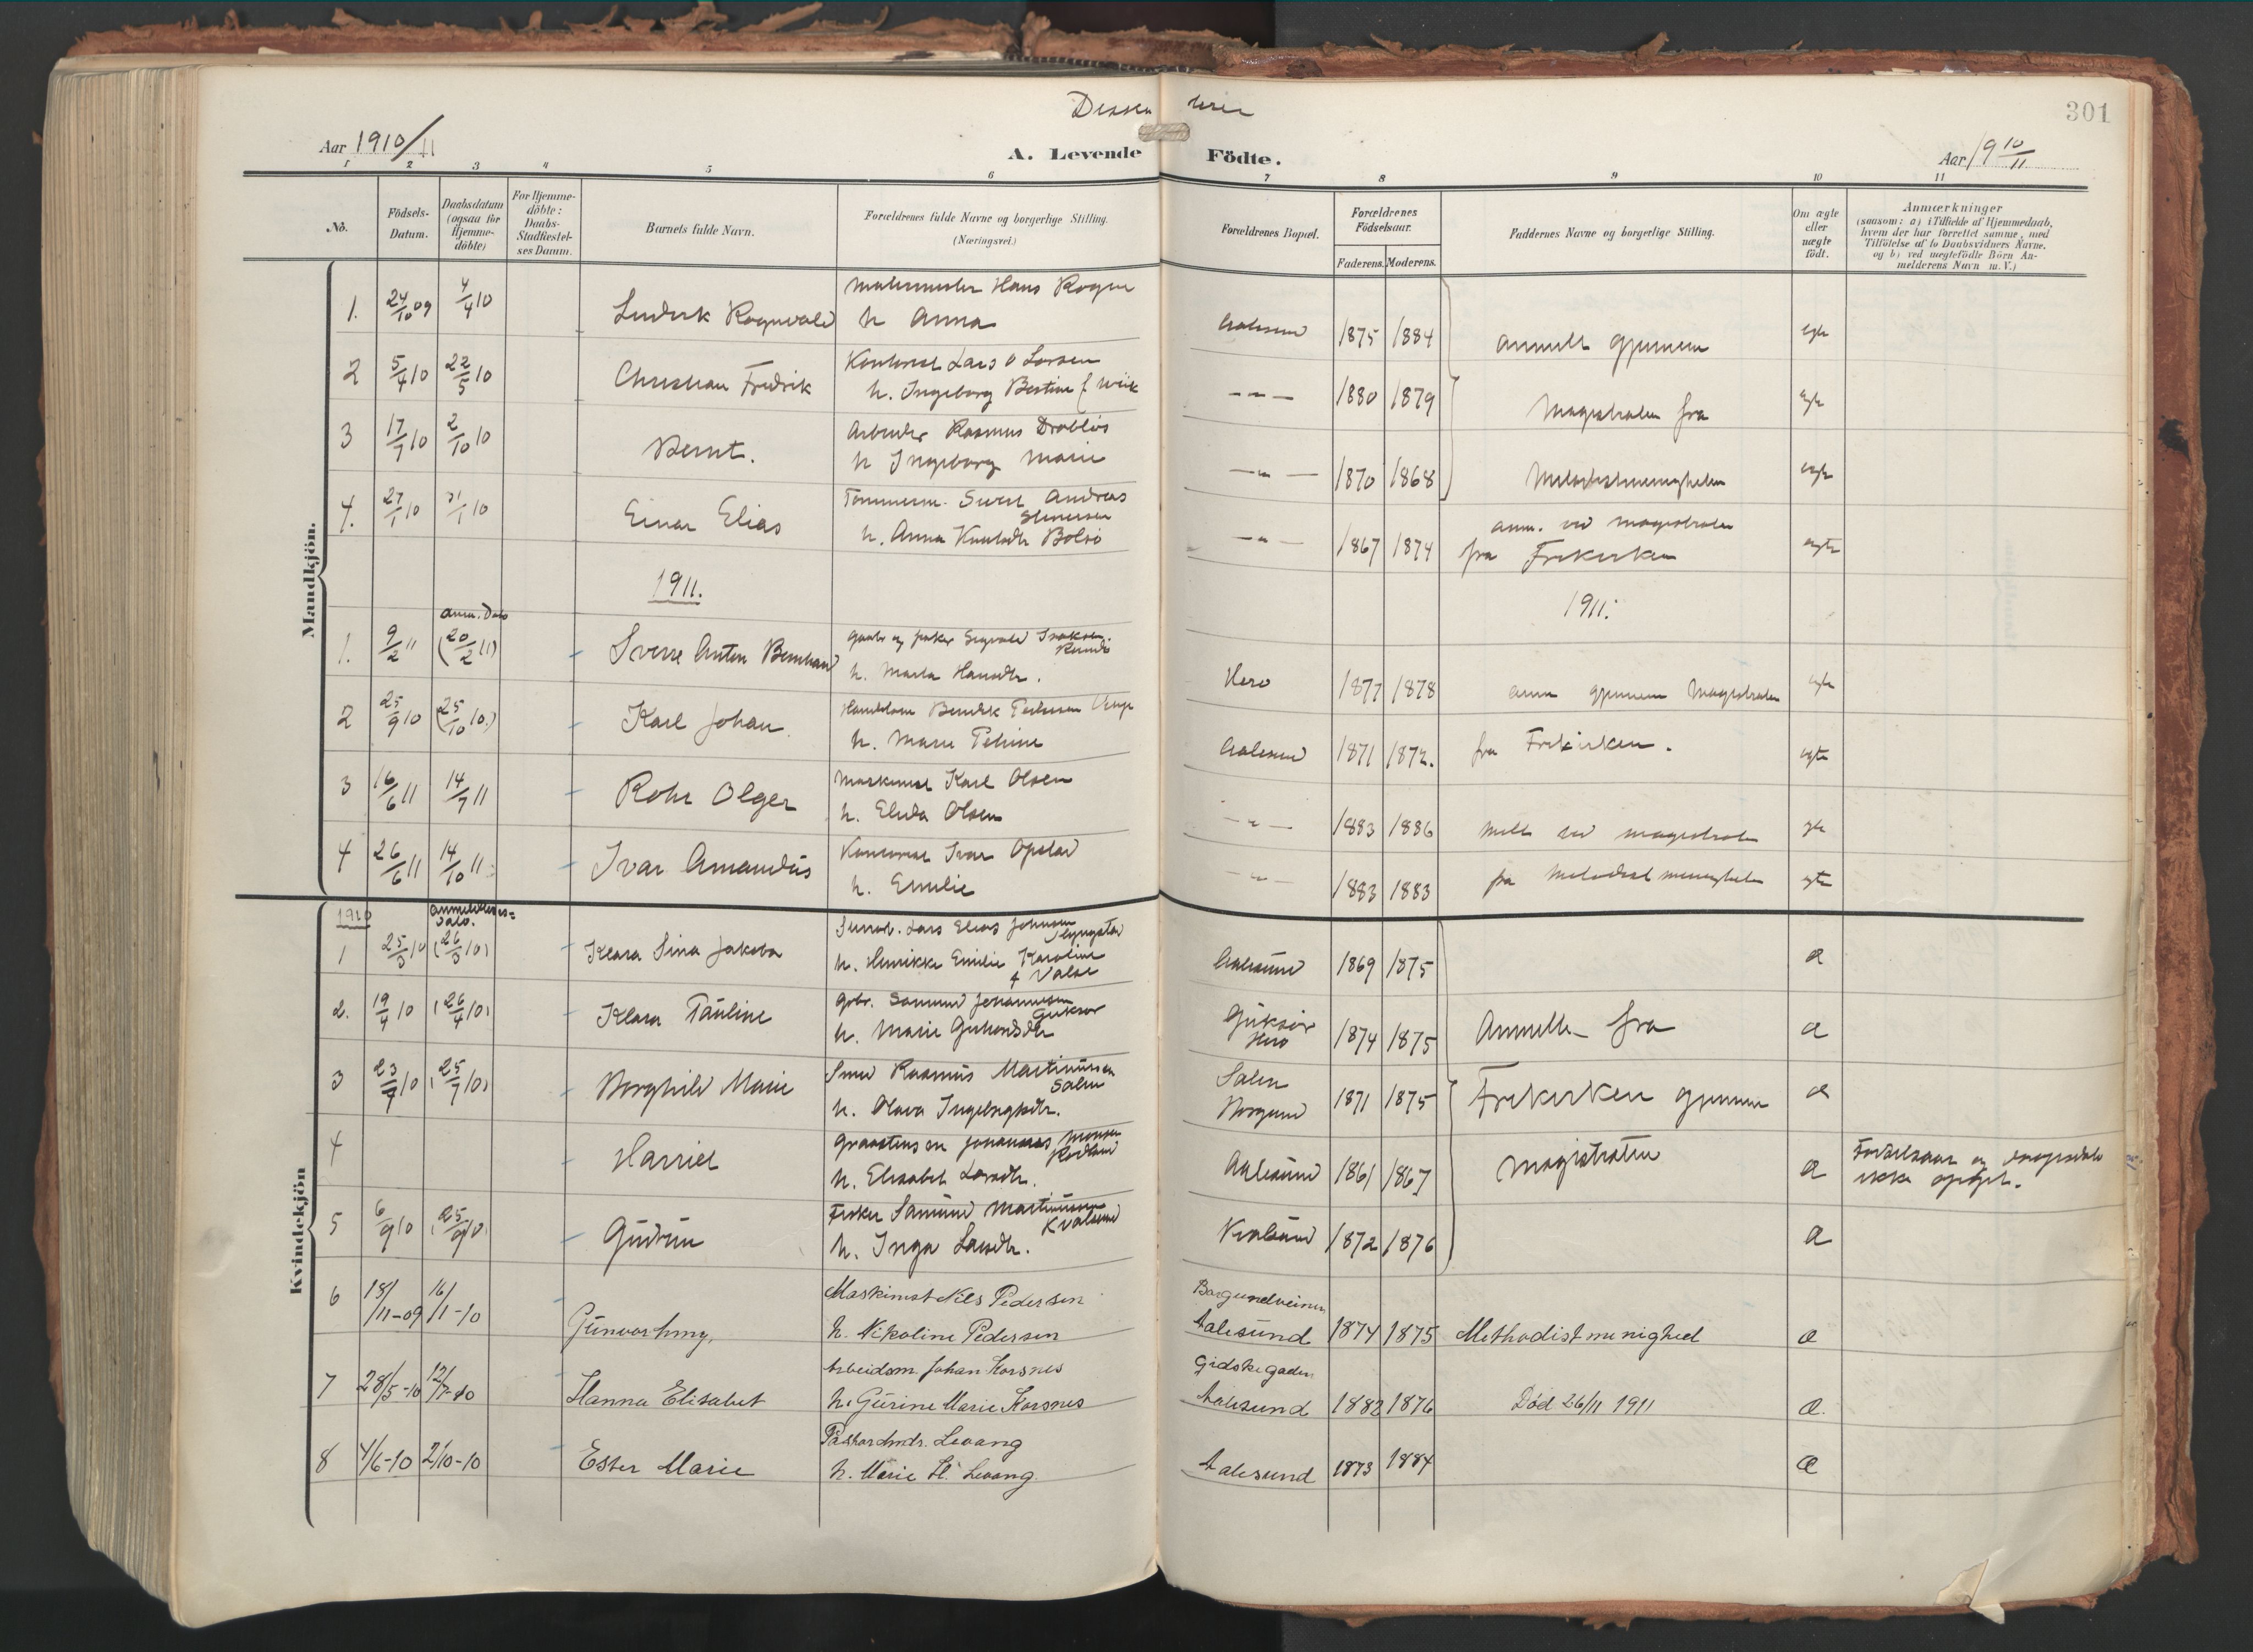 Dissen terer
301
Aar 1910/11
A. Levende Födte.
Aar 1910/11
1 2 3 4 5 6 7 8 9 10 11
No.
Födsels-Datum.
Daabsdatum (ogsaa for Hjemme-döbte)
For Hjemme-döbte: Daabs-Stadfæstel-ses Datum.
Barnets fulde Navn.
Forældrenes fulde Navne og borgerlige Stilling. (Næringsvei.)
Forældrenes Bopæl.
Forældrenes Födselsaar.
Faderens. Moderens.
Faddernes Navne og borgerlige Stilling.
Om ægte eller uægte födt.
Anmærkninger
(saasom: a) i Tilfælde af Hjemmedaab, hvem der har forrettet samme, med Tilföielse af to Daabsvidners Navne, og b) ved uægtefödte Börn An-melderens Navn m. V.)
Mandkjön.
1. 24/10 09 4/4 10 Ludvik Rognvald Malermester Hans Rogne
h Anna Aalesund 1875 1884 anmeldt gjennem egte
2 5/4 10 22/5 10 Christian Fredrik Kontorist Lars O Larsen
h. Ingeborg Bastine f Wiik 1880 1879 Magistraten fra egte
3 17/7 10 2/10 10 Bernt. Arbeider Rasmus Drabløs
h Ingeborg Marie 1870 1868 Metodistmenigheten egte
4. 27/1 10 31/1 10 Einar Elias Tømmerm. Sivert Andreas
h. Anna Knutsdtr Bolsø 1867 1874 anm. ved magistraten
fra Frikirken egte
1911. 1911.
anm. Dato
1. 9/2 11 (20/2 11) Sverre Anton Bernhard gaardbr og fisker Sigvald Isaksen
h. Marta Hansdtr. Herø 1877 1878 anm gjennem Magistraten egte
2 25/9 10 (25/10 10) Karl Johan Handelsm Bendik Pedersen
h. Marie Petrine Aalesund 1871 1872. fra Frikirken. egte
3 16/6 11 14/7 11 Rohr Olger Maskinist Karl Olsen
h. Elida Olsen 1883 1886 meldt ved magistraten egte
4 26/6 11 14/10 11 Ivar Amandus Kontorist Ivar Opstad
h. Emilie 1883 1883 fra Metodist menigheten egte
Kvindekjön
1910 anmeldelses=dato.
1 25/3 10 (26/3 10) Klara Sina Jakoba Lars Elias Johnsen
h. Henrikke Emilie Karoline
f Valse Aalesund 1869 1875 æ
2. 19/4 10 (26/4 10) Klara Pauline gbr. Samund Johannesen
Gurskør
h. Marie Gurskør
Herø 1874 1875 Anmeldte fra æ
3 23/7 10 (25/7 10) Borghild Marie Smed Rasmus Martinussen
Salen
h. Olava Ingebrigtsdtr. Salen
Borgund 1871 1875 Frikirken gjennem æ
4 Harriet Johannes Monsen
h. Elisabet Larsdtr. Aalesund 1861 1867 Magistraten æ Fødselsaar og
ikke opgit.
5 6/9 10 (25/9 10) Gudrun Fisker Samund Martinussen
Kvalsund
h. Inga Larsdtr. Kvalsund 1872 1876 æ
6 18/11-09 16/1-10 Gunvor Maskinist Nils Pedersen
h. Nikoline Pedersen Borgundveien
Aalesund 1874 1875 Methodistmenighed æ
7 28/5-10 12/7-10 Hanna Elisabet Arbeidsm. Johan Korsnes
h. Gurine Marie Korsnes Gidskegaden
Aalesund 1882 1876 Død 26/11 1911 æ.
8 4/6-10 2/10-10 Ester Marie Levang
h. Marie H. Levang Aalesund 1873 1884 æ